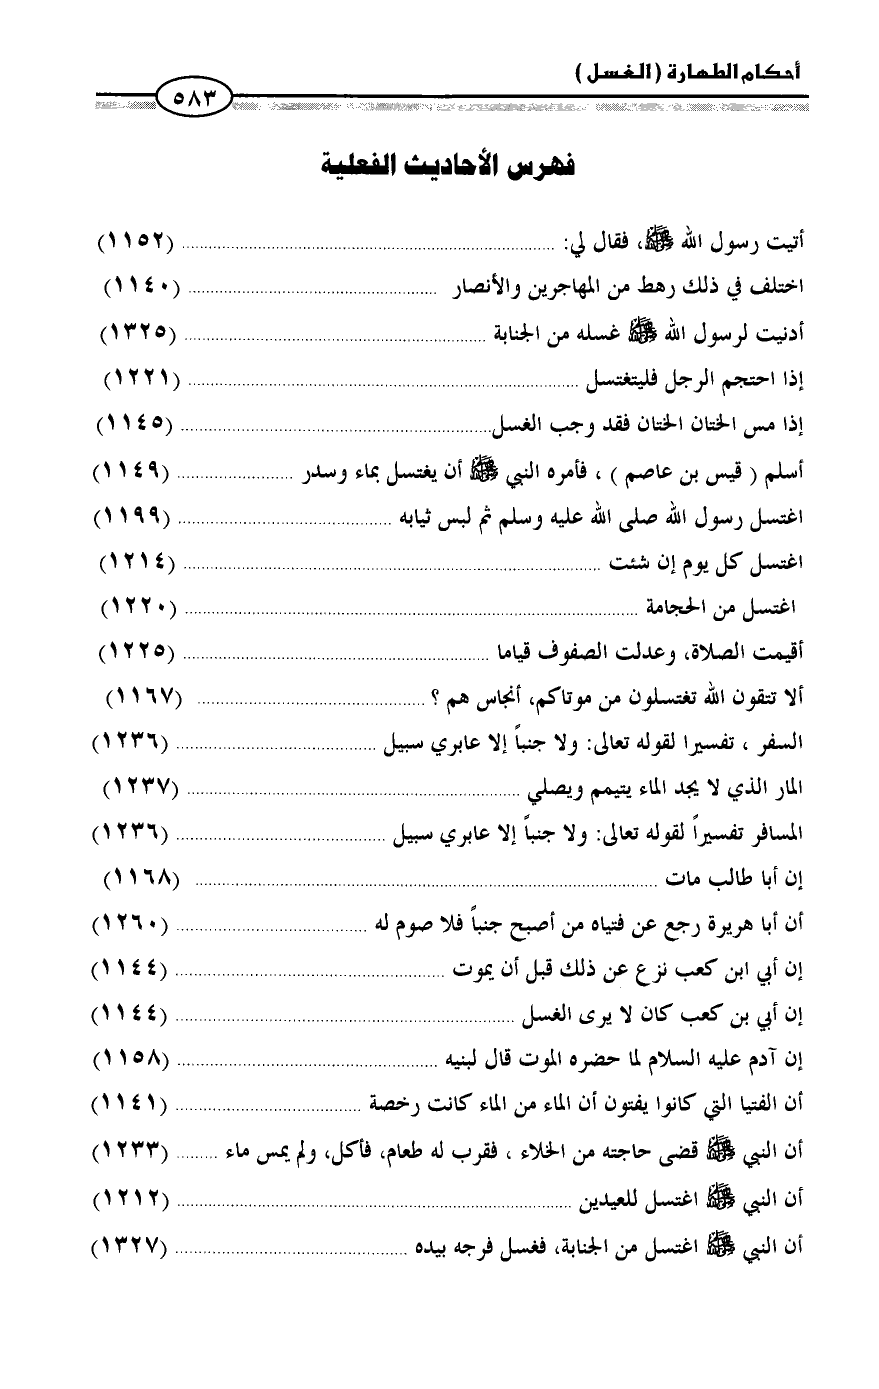 أحكام الطهارة ( الغسل )
٥٨٣
فهرس الأحاديث الفعلية
أتيت رسول الله ﷺ، فقال لي: ........ (١١٥٢)
اختلف في ذلك رهط من المهاجرين والأنصار ........ (١١٤٠)
أدنيت لرسول الله ﷺ غسله من الجنابة ........ (١٣٢٥)
إذا احتجم الرجل فليتغتسل ........ (١٢٢١)
إذا مس الختان الختان فقد وجب الغسل ........ (١١٤٥)
أسلم ( قيس بن عاصم ) ، فأمره النبي ﷺ أن يغتسل بماء وسدر ........ (١١٤٩)
اغتسل رسول الله صلى الله عليه وسلم ثم لبس ثيابه ........ (١١٩٩)
اغتسل كل يوم إن شئت ........ (١٢١٤)
اغتسل من الحجامة ........ (١٢٢٠)
أقيمت الصلاة، وعدلت الصفوف قياما ........ (١٢٢٥)
ألا تتقون الله تغتسلون من موتاكم، أنجاس هم ؟ ........ (١١٦٧)
السفر ، تفسيرا لقوله تعالى: ولا جنباً إلا عابري سبيل ........ (١٢٣٦)
المار الذي لا يجد الماء يتيمم ويصلي ........ (١٢٣٧)
المسافر تفسيراً لقوله تعالى: ولا جنباً إلا عابري سبيل ........ (١٢٣٦)
إن أبا طالب مات ........ (١١٦٨)
أن أبا هريرة رجع عن فتياه من أصبح جنباً فلا صوم له ........ (١٢٦٠)
إن أبي ابن كعب نزع عن ذلك قبل أن يموت ........ (١١٤٤)
إن أبي بن كعب كان لا يرى الغسل ........ (١١٤٤)
إن آدم عليه السلام لما حضره الموت قال لبنيه ........ (١١٥٨)
أن الفتيا التي كانوا يفتون أن الماء من الماء كانت رخصة ........ (١١٤١)
أن النبي ﷺ قضى حاجته من الخلاء ، فقرب له طعام، فأكل، ولم يمس ماء ........ (١٢٣٣)
أن النبي ﷺ اغتسل للعيدين ........ (١٢١٢)
أن النبي ﷺ اغتسل من الجنابة، فغسل فرجه بيده ........ (١٣٢٧)